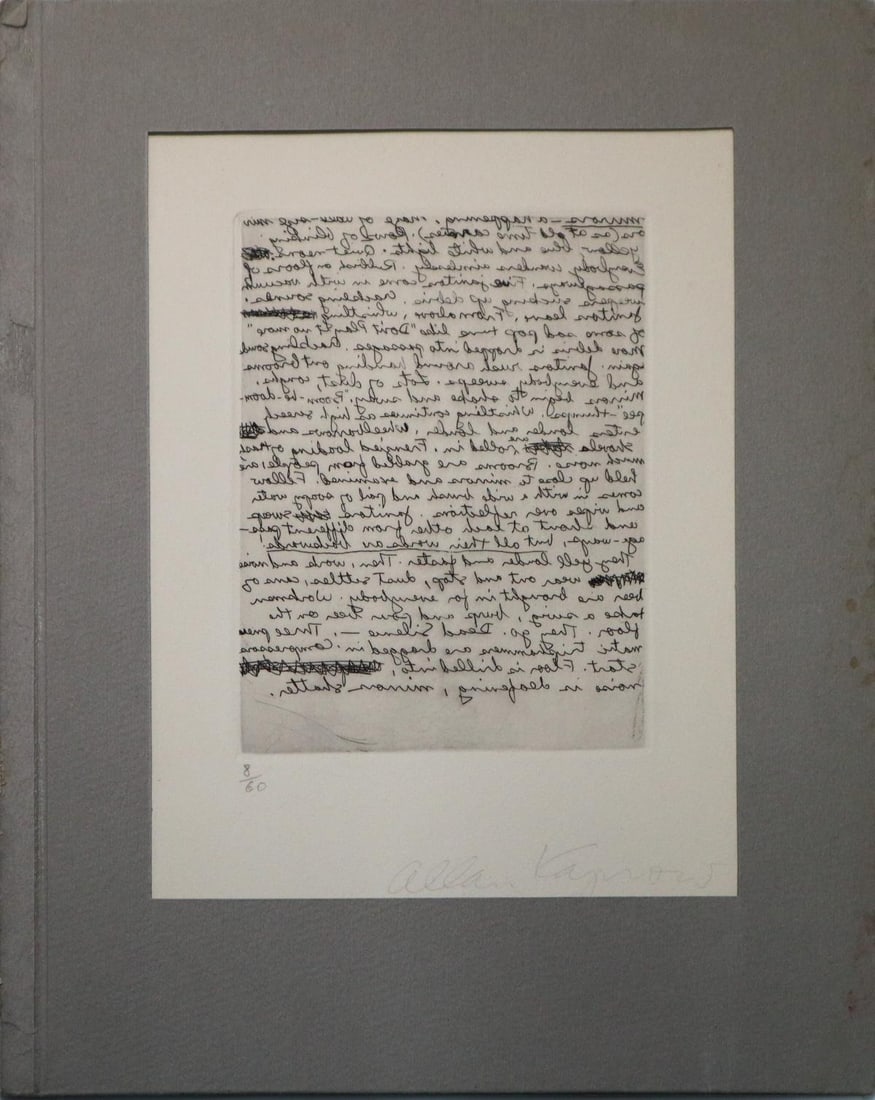 mirrors — a happening. Maze of wall-size mirr
ors (as at old time carnies). Rows of blinking
yellow blue and white lights. Quiet neons.
Everybody wanders aimlessly. Rubbish on floors of
passageways. Five janitors come in with vacuum
sucking up debris. Crackling sounds.
Janitors leave. From above, whistling
of some sad pop tune like "Don't Play It no more"
More debris is dropped into passages. Crackling sound
again. Janitors rush around handing out brooms
and everybody sweeps. Lots of dust, coughs.
Mirrors begin to shake and sway. "Boom"-ba-doom-
pee"-thumps). Whistling continues as high screech
enters louder and louder. Wheelbarrows and
shovels are rolled in. Frenzied loading of trash
much noise. Brooms are grabbed from people, are
held up close to mirrors and examined. Fellow
comes in with a wide brush and pail of soapy water
and wipes over reflections. Janitors swear
and shout at each other from different pass-
age-ways, but all their words are backwards.
They yell louder and faster. Then, work and noise
wear out and stop, dust settles, cans of
beer are brought in for everybody. Workmen
take a swig, burp and pour beer on the
floor. They go. Dead Silence —. Three pneu
matic triphammers are dragged in. Compressors
start. Floor is drilled into,
noise is deafening, mirrors shatter.
8/60
Allan Kaprow